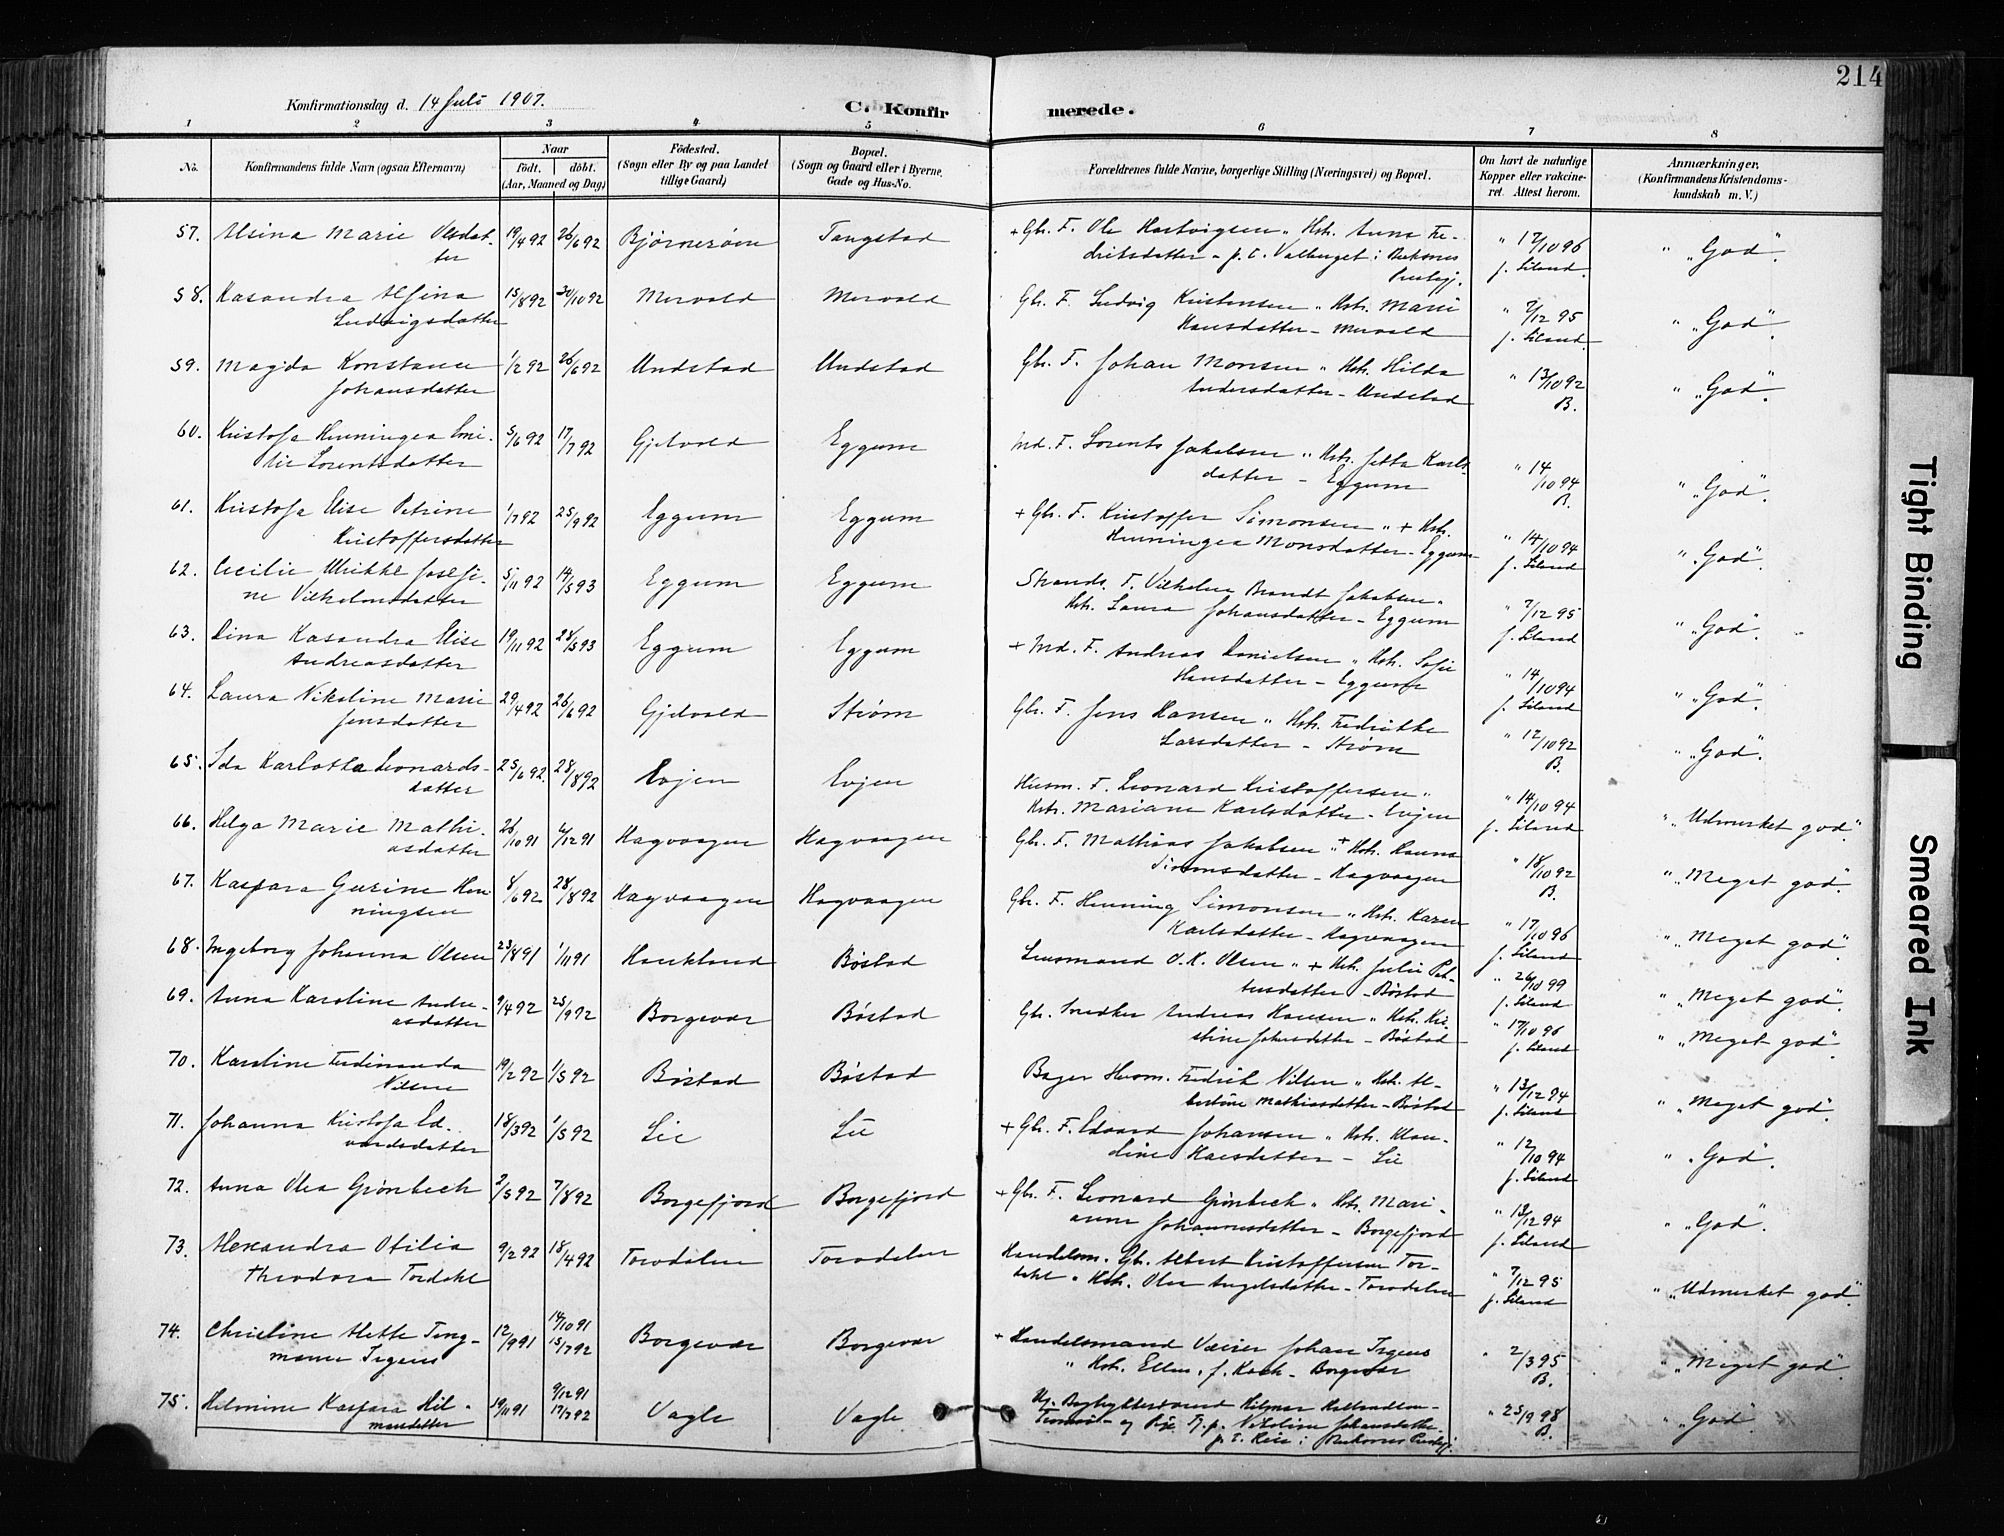 214
Konfirmationsdag d. 14 Juli 1907.
C. Konfirmerede.
1 2 3 4 5 6 7 8
No.
Konfirmandens fulde Navn (ogsaa Efternavn)
Naar
født. døbt.
(Aar, Maaned og Dag)
Fødested.
(Sogn eller By og paa Landet
tillige Gaard)
Bopæl.
(Sogn og Gaard eller i Byerne,
Gade og Hus-No.
Forældrenes fulde Navne, borgerlige Stilling (Næringsvei) og Bopæl.
Om havt de naturlige
Kopper eller vakcine-
ret. Attest herom.
Anmærkninger.
(Konfirmandens Kristendoms-
kundskab m. V.)
57. Alsina Marie Olsdat- 19/4 92 26/6 92 Bjørnerøen Tangstad + Gbr. F. Ole Hartvigsen " Hst. Anna Fre- " 17/10 96 " "God".
ter driksdatter - p. t. Valberget i Buksnes f. Siland.
Prestegj.
58. Kasandra Alfina 15/8 92 30/10 92 Mervold Mervold Gbr. F. Ludvig Kristensen " Hst. Marie " 7/12 95 " "God".
Ludvigsdatter Hansdatter - Mervold f. Siland.
59. Magda Konstance 1/2 92 26/6 92 Undstad Undstad Gbr. F. Johan Monsen " Hst. Hilda " 13/10 92 " "God".
Johansdatter Andersdatter - Undstad B.
60. Kristofa Henningea Emi- 5/6 92 17/7 92 Gjelvold Eggum Md. F. Lorents Jakobsen " Hst. Jetta Karls- " 14/10 94 " "God".
lie Lorentsdatter datter - Eggum B.
61. Kristofa Elise Petrine 1/7 92 25/9 92 Eggum Eggum + Gbr. F. Kristoffer Simonsen " + Hst. " 14/10 94 " "God".
Kristoffersdatter Henningea Monsdatter - Eggum f. Siland
62. Cecilie Ulrikke Josefi- 5/11 92 14/5 93 Eggum Eggum Strands. F. Vilhelm Brandt Jakobsen " " 7/12 95 " "God".
ne Vilhelmsdatter Hst. Laura Johansdatter - Eggum f. Siland
63. Dina Kasandra Elise 19/11 92 28/5 93 Eggum Eggum + Md. F. Andreas Danielsen " Hst. Sofie " 14/10 94 " "God".
Andreasdatter Hansdatter - Eggum f. Siland
64. Laura Nikoline Marie 29/4 92 26/6 92 Gjelvold Strøm Gbr. F. Jens Hansen " Hst. Fredrikke " 12/10 92 " "God".
Jensdatter Larsdatter - Strøm B.
65. Ida Karlotta Leonards- 25/6 92. 28/8 92 Evjen Evjen Husm. F. Leonard Kristoffersen " " 14/10 94 " "Udmerket god".
datter Hst. Mariane Karlsdatter - Evjen f. Siland
66. Helga Marie Mathi- 26/10 91 6/12 91 Hagvaagen Hagvaagen Gbr. F. Mathias Jakobsen " + Hst. Hanna " 18/10 92 " "Meget god".
asdatter Simonsdatter - Hagvaagen B.
67. Kaspara Gurine Hen- 8/6 92 28/8 92 Hagvaagen Hagvaagen Gbr. F. Henning Simonsen " Hst. Karen " 17/10 96 " "Meget god".
ningsen Karlsdatter - Hagvaagen f. Siland
68. Ingeborg Johanna Olsen 23/8 91 1/11 91 Haukland Bøstad Lensmand O. K. Olsen " + Hst. Julie Pet- " 26/10 99 " "Meget god".
tersdatter - Bøstad f. Siland
69. Anna Karoline Andre- 9/4 92 25/9 92 Borgevær Bøstad Gbr. Snedker Andreas Hansen " Hst. Kri- " 17/10 96 " "Meget god".
asdatter stine Johansdatter - Bøstad f. Siland
70. Karoline Ferdinanda 19/2 92 1/5 92 Bøstad Bøstad Bager Husm. Fredrik Nilsen " Hst. Al- " 13/12 94 " "Meget god".
Nilsen bertine Mathiasdatter - Bøstad f. Siland
71. Johanna Kristofa Ed- 18/3 92 1/5 92 Lie Lie + Gbr. F. Edvard Johansen " Hst. Klau- " 12/10 94 " "God".
vardsdatter dine Hansdatter - Lie f. Siland
72. Anna Olea Grønbech 2/5 92 7/8 92 Borgefjord Borgefjord + Gbr. F. Leonard Grønbech " Hst. Mari- " 13/12 94 " "God".
anne Johannesdatter - Borgefjord f. Siland
73. Alexandra Otilia 9/2 92 18/4 92 Torvdalen Torvdalen Handelsm. Gbr. Albert Kristoffersen Tor- " 7/12 95 " "Udmerket god".
Theodora Tordahl dahl " Hst. Olea Angelsdatter - Torvdalen f. Siland
74. Christine Mette Ting- 12/9 91 14/10 91 15/7 92 Borgevær Borgevær + Handelsmand Væier Johan Irgens " 2/3 95 " "Meget god".
mann Irgens " Hst. Ellen, f. Koch - Borgevær B.
75. Hilmine Kaspara Hil- 19/11 91 9/12 91 17/7 92 Vagle Vagle Hilmar " 25/9 98 " "God".
marsdatter Nikoline Johansdatter B.
p. t. i Buksnes Prestegj.
Tight Binding
Smeared Ink